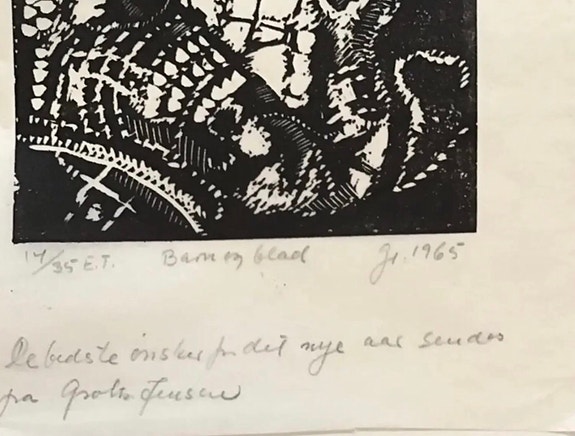 14/35 E.T. Barn og blad Gr. 1965
De bedste ønsker for det nye aar sendes
fra Jensen